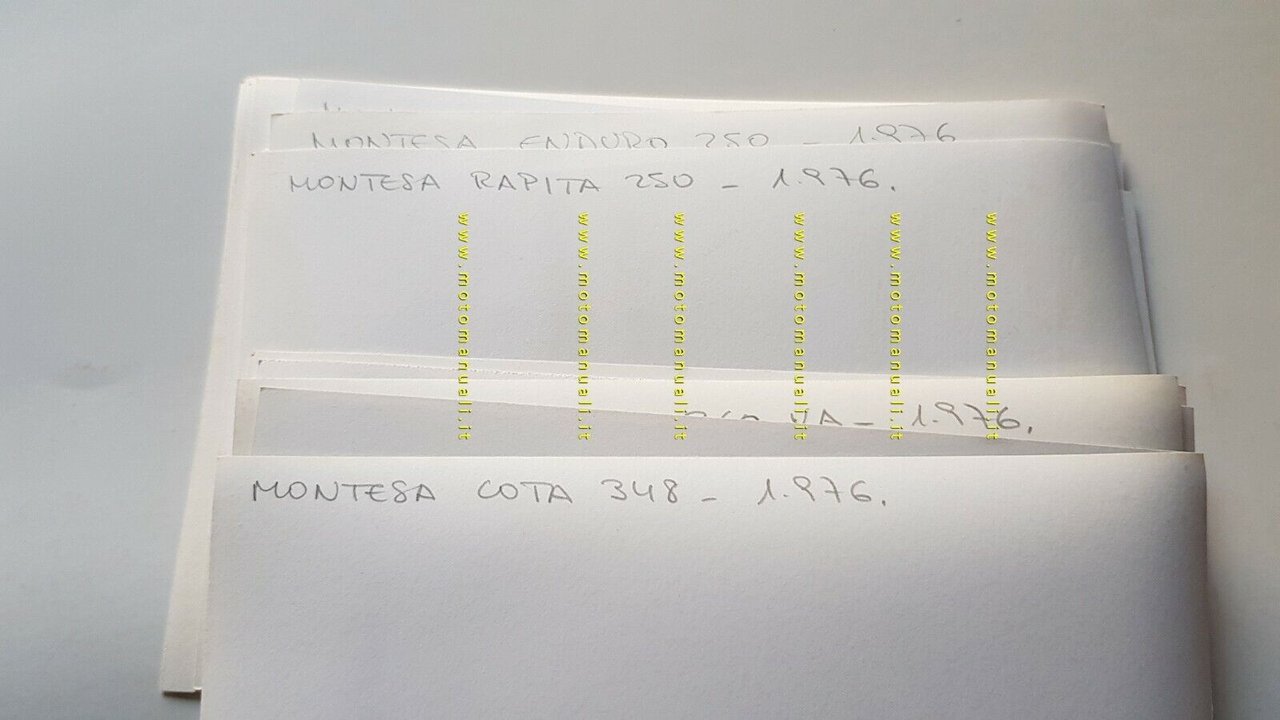 MONTESA ENDURO 250 - 1.976
MONTESA RAPITA 250 - 1.976.
www.motomanuali.it
www.motomanuali.it
www.motomanuali.it
www.motomanuali.it
www.motomanuali.it
www.motomanuali.it
- 1.976.
MONTESA COTA 348 - 1.976.